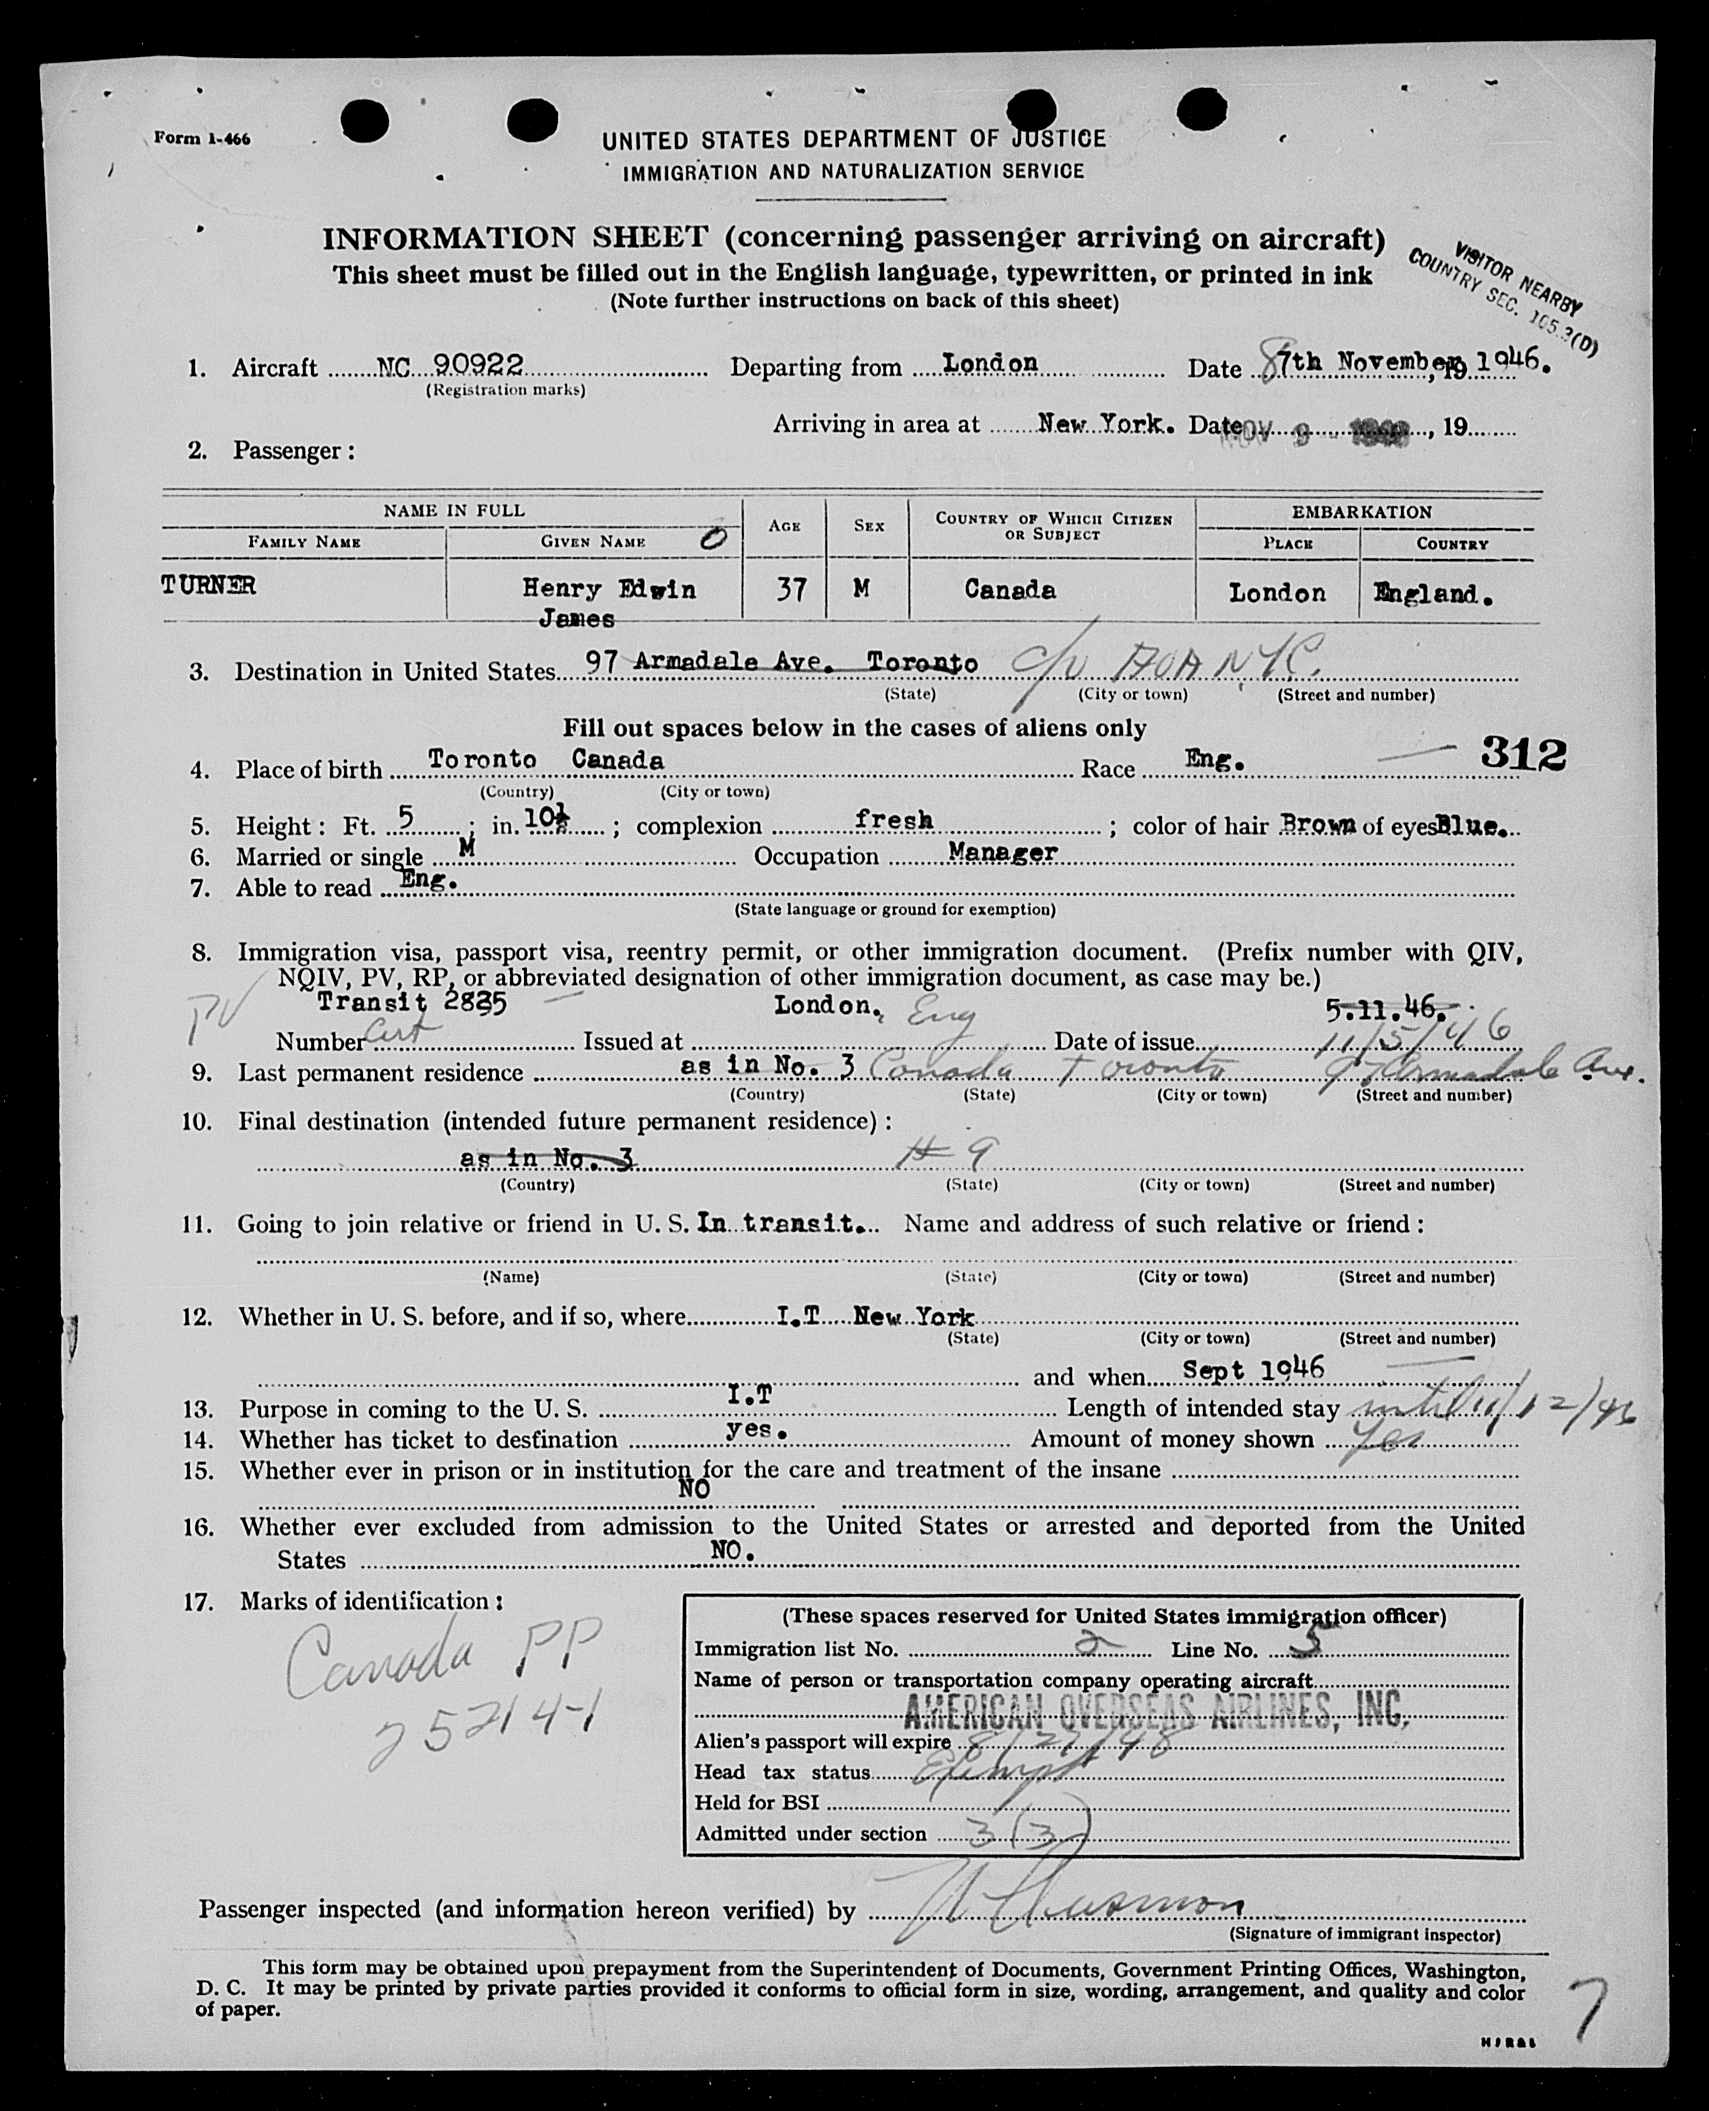 Form I-466
UNITED STATES DEPARTMENT OF JUSTICE
IMMIGRATION AND NATURALIZATION SERVICE
INFORMATION SHEET (concerning passenger arriving on aircraft)
This sheet must be filled out in the English language, typewritten, or printed in ink
(Note further instructions on back of this sheet)
VISITOR NEARBY
COUNTRY SEC. 105.3(D)
1. Aircraft NC 90922 Departing from London Date 8 7th November, 19 1946.
(Registration marks)
Arriving in area at New York. Date NOV 9 - 1946, 19
2. Passenger :
NAME IN FULL AGE SEX COUNTRY OF WHICH CITIZEN OR SUBJECT EMBARKATION
FAMILY NAME GIVEN NAME O PLACE COUNTRY
TURNER Henry Edwin 37 M Canada London England.
James
3. Destination in United States 97 Armadale Ave. Toronto c/o AOA NYC.
(State) (City or town) (Street and number)
Fill out spaces below in the cases of aliens only
312
4. Place of birth Toronto Canada Race Eng.
(Country) (City or town)
5. Height : Ft. 5 ; in. 10½ ; complexion fresh ; color of hair Brown of eyes Blue.
6. Married or single M Occupation Manager
7. Able to read Eng.
(State language or ground for exemption)
8. Immigration visa, passport visa, reentry permit, or other immigration document. (Prefix number with QIV,
NQIV, PV, RP, or abbreviated designation of other immigration document, as case may be.)
PV Transit 2835 London, Eng 5.11.46.
Number Cert Issued at Date of issue 11/5/46
9. Last permanent residence as in No. 3 Canada Toronto 97 Armadale Ave.
(Country) (State) (City or town) (Street and number)
10. Final destination (intended future permanent residence) :
as in No. 3 # 9
(Country) (State) (City or town) (Street and number)
11. Going to join relative or friend in U. S. In transit. Name and address of such relative or friend :
(Name) (State) (City or town) (Street and number)
12. Whether in U. S. before, and if so, where I.T New York
(State) (City or town) (Street and number)
and when Sept 1946
13. Purpose in coming to the U. S. I.T Length of intended stay until 11/12/46
14. Whether has ticket to desfination yes. Amount of money shown Yes
15. Whether ever in prison or in institution for the care and treatment of the insane
NO
16. Whether ever excluded from admission to the United States or arrested and deported from the United
States NO.
17. Marks of identification :
Canada PP
25214-1
(These spaces reserved for United States immigration officer)
Immigration list No. 2 Line No. 5
Name of person or transportation company operating aircraft
AMERICAN OVERSEAS AIRLINES, INC.
Alien's passport will expire 8/27/48
Head tax status Exempt
Held for BSI
Admitted under section 3(3)
Passenger inspected (and information hereon verified) by
(Signature of immigrant inspector)
This form may be obtained upon prepayment from the Superintendent of Documents, Government Printing Offices, Washington,
D. C. It may be printed by private parties provided it conforms to official form in size, wording, arrangement, and quality and color
of paper.
7